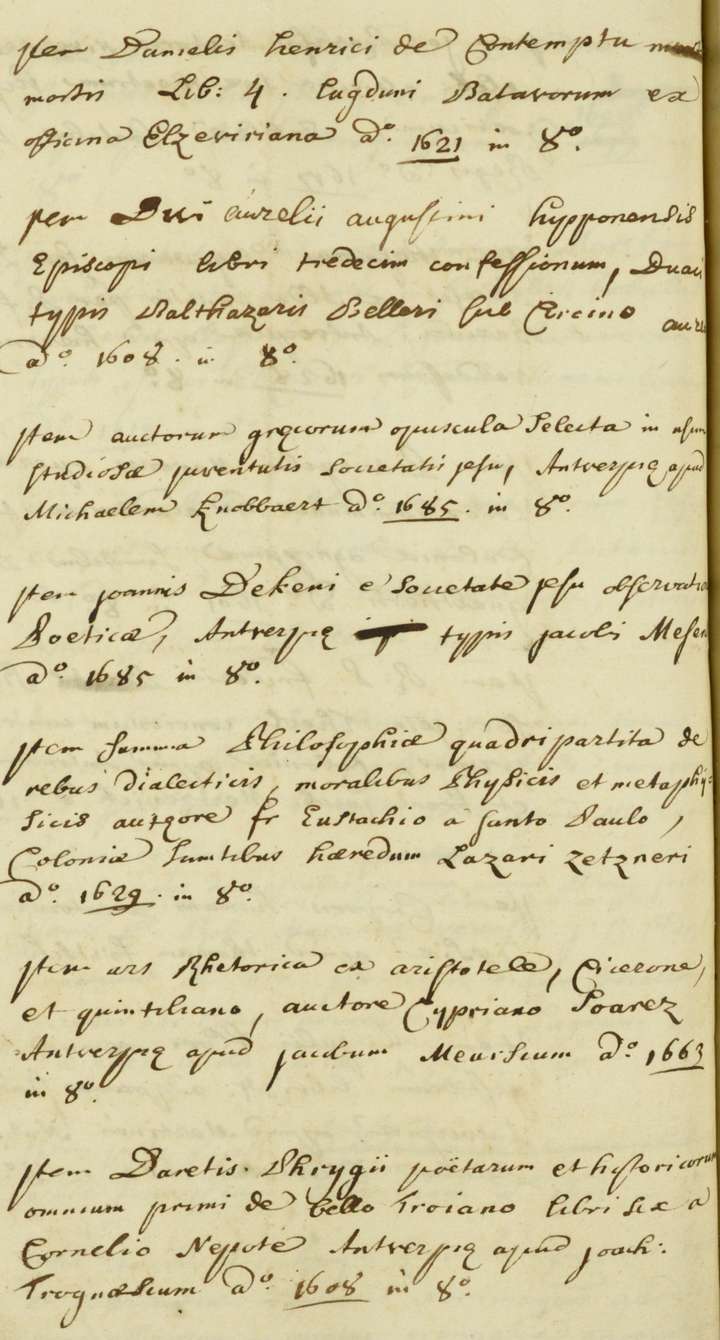 Jtem Danielis henrici de Contemptu
mortis Lib: 4. lugduni Batavorum ex
officina Elzeviriana a.° 1621 in 8.°
Jtem Divi aurelii augustini hypponensis
Episcopi libri tredecim confessionum, Duaci
typis Balthazaris Belleri sub Circino
a.° 1608. in 8.°
Jtem auctorum gręcorum opuscula Selecta in usum
studiosæ juventutis societatis jesu, Antverpię apud
Michaelem Knobbaert a.° 1685. in 8.°
Jtem joannis Dekeni e' Societate jesu
Poeticæ, Antverpię typis jacobi
a.° 1685 in 8.°
Jtem summa Philosophiæ quadripartita de
rebus dialecticis, moralibus Physicis et metaphy-
sicis autqore fr Eustachio a sancto Paulo,
Coloniæ sumtibus hæredum Lazari Zetzneri
a.° 1629. in 8.°
Jtem ars Rhetorica ex aristotele, Cicerone,
et quintiliano, auctore Cypriano Soarez
Antverpię apud jacobum Meursium a.° 1663
in 8.°
Jtem Daretis Phrygii poëtarum et historicorum
omnium primi de bello Troiano libri sex a
Cornelio Nepote Antverpię apud joach:
Trognæsium a.° 1608 in 8.°